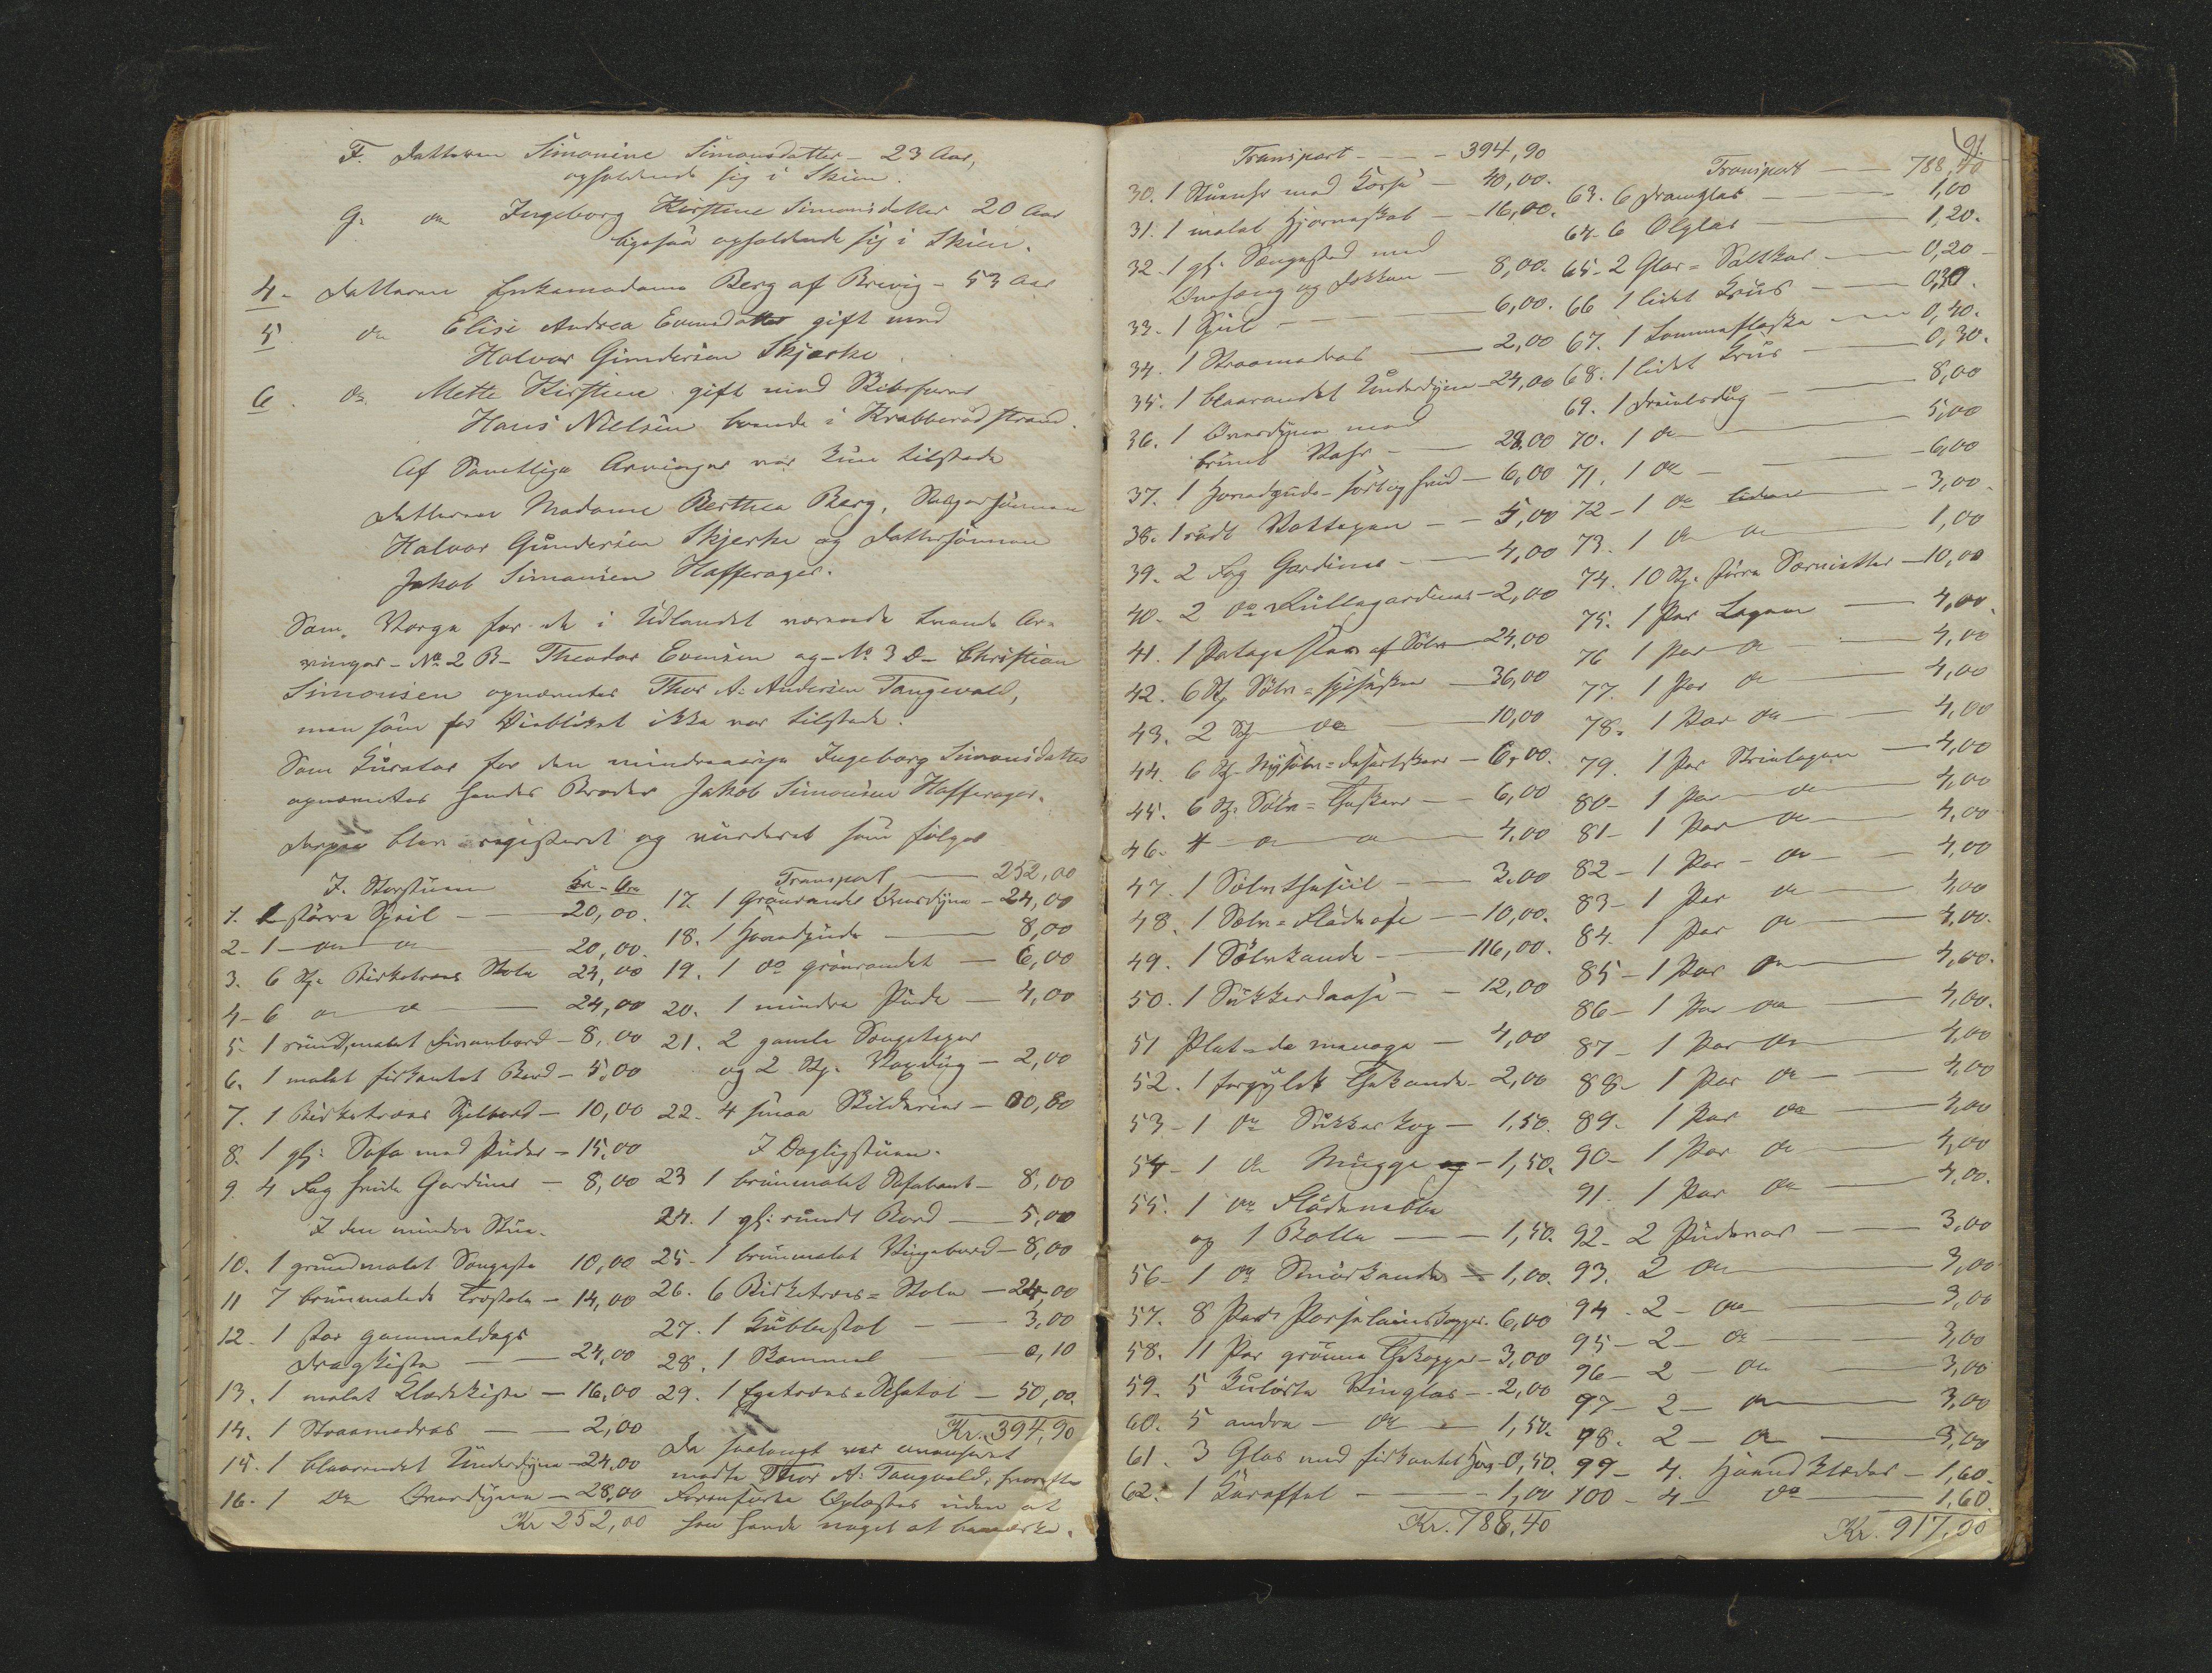 F. Datteren Simonine Simonsdatter - 23 Aar,
opholdende sig i Skien.
G. do Ingeborg Kirstine Simonsdatter 20 Aar
ligesaa opholdende sig i Skien.
4. Datteren Enkemadame Berg af Brevig - 53 Aar
5. do Elise Andrea Evensdatter gift med
Halvor Gundersen Skjerke.
6. do Mette Kirstine gift med Skibsfører
Hans Nielsen boende i Krabberødstrand.
Af Samtlige Arvinger var kun tilstede
Datteren Madame Berthea Berg, Svigersønnen
Halvor Gundersen Skjerke og Dattersønnen
Jakob Simonsen Hafferager.
Som Værge for de i Udlandet værende tvende Ar=
vinger - No 2 B - Theodor Evensen og No 3 D - Christian
Simonsen opnævntes Thor A. Andersen Tangevald,
men som for Øieblikket ikke var tilstede.
Som Kurator for den mindreaarige Ingeborg Simonsdatter
opnævntes hendes Broder Jakob Simonsen Hafferager.
Derpaa blev registeret og vurderet som følger
I Storstuen Kr - Øre
1. 1 større Speil - 20,00.
2 - 1 do do 20,00.
3. 6 St. Birketræes Stole 24,00
4 - 6 do do 24,00
5 - 1 rundt, malet Simonbord - 8,00
6. 1 malet firkantet Bord - 5,00
7. 1 Birketræes Spilbord - 10,00
8. 1 gl: Sofa med Puder - 15,00
9. 4 Fag hvide Gardiner - 8,00
I den mindre Stue.
10. 1 grundmalet Sengested 10,00
11 7 brunmalede Træstole - 14,00
12. 1 stor gammeldags
Dragkiste - 24,00
13. 1 malet Klædekiste - 16,00
14. 1 Straamadras - 2,00
15. 1 blaarandet Underdyne - 24,00
16. 1 do Overdyne - 28,00
Kr 252,00
Transport - 252,00
17. 1 grønrandet Overdyne - 24,00
18. 1 Hovedpude - 8,00
19. 1 do grønrandet - 6,00
20. 1 mindre Pude - 4,00
21. 2 gamle Sengetæper
og 2 St. Voxdug - 2,00
22. 4 smaa Skilderier - 00,80
I Dagligstuen.
23 1 brunmalet Slagbænk - 8,00
24. 1 gl: rundt Bord - 5,00
25 - 1 brunmalet Vingebord - 8,00
26. 6 Birketræes = Stole - 24,00
27. 1 Kubbestol - 3,00
28. 1 Skammel - 0,10
29. 1 Egetræes = Schatol - 50,00.
Kr. 394,90
Da saalangt var anauseret
mødte Thor A. Tangvald, hvorefter
Foranførte Oplæstes uden at
han havde noget at bemærke.
91.
Transport - 394,90
30. 1 Stueuhr med Kasse - 40,00.
31. 1 malet Hjørneskab - 16,00.
32 - 1 gl: Sengested med
Omhæng og - 8,00.
33. 1 Speil - 6,00.
34. 1 Straamadras - 2,00
35. 1 blaarandet Underdyne - 24,00
36. 1 Overdyne med
brunt Vahr - 28,00
37. 1 Hovedpude - 6,00
38. 1 rødt Vattepen - 5,00
39. 2 Fag Gardiner - 4,00
40. 2 do Rullegardiner - 2,00
41. 1 Potageskee af Sølv - 24,00
42. 6 St. Sølv = Spiseskee - 36,00
43. 2 St do 10,00
44. 6 St. Nysølv = Desertskeer - 6,00.
45. 6 St. Sølv = Theskeer - 6,00
46. 4 do do 4,00
47. 1 Sølvthesiil - 3,00
48. 1 Sølv = Flødeøse - 10,00.
49. 1 Sølvkande - 116,00.
50. 1 Sukkerdaase - 12,00
51 Plat-de menage - 4,00
52. 1 forgyldt Thekande - 2,00
53 - 1 do Sukkerkop - 1,50.
54 - 1 do Mugge - 1,50.
55. 1 do Flødemugge
og 1 Bolle - 1,50.
56 - 1 do Smørkande - 1,00.
57. 8 Par Porselainskopper. 6,00
58. 11 Par grønne Thekopper - 3,00
59. 5 kulørte Vinglas - 2,00
60. 5 andre - do - 1,50.
61. 3 Glas med firkantet - 0,50.
62. 1 Karaffel - 1,00
Kr. 788,40
Transport - 788,40
63. 6 Dramglas - 1,00
64 - 6 Ølglas - 1,20.
65 - 2 Glas = Saltkar - 0,20
66 1 lidet Krus - 0,30.
67. 1 Lommeflaske - 0,40.
68. 1 lidet Krus - 0,30.
69. 1 Dreielsdug - 8,00
70. 1 do 5,00
71. 1 do - 6,00
72 - 1 do liden - 3,00.
73. 1 do do 1,00
74. 10 St. større Servietter - 10,00
75. 1 Par Lagen - 4,00.
76 1 Par do 4,00
77. 1 Par do 4,00
78. 1 Par do 4,00
79. 1 Par Strielagen - 4,00
80 - 1 Par do 4,00
81 - 1 Par do 4,00
82 - 1 Par - do - 4,00
83 - 1 Par do 4,00
84. 1 Par do 4,00.
85 - 1 Par do 4,00.
86 - 1 Par do 4,00.
87 - 1 Par do 4,00
88 - 1 Par do - 4,00
89. 1 Par do 4,00
90 - 1 Par do 4,00
91. 1 Par do 4,00.
92 - 2 Pudevar - 3,00
93. 2 do 3,00
94 - 2 - do 3,00
95 - 2 - do 3,00
96 - 2 - do 3,00
97 - 2 - do 3,00
98. 2 - do 3,00
99 - 4. Haandklæder - 1,60.
100 - 4 - do 1,60.
Kr. 917,00